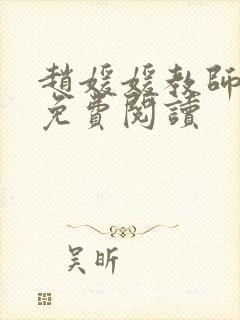 趙媛媛教師
免費閱讀
吴昕